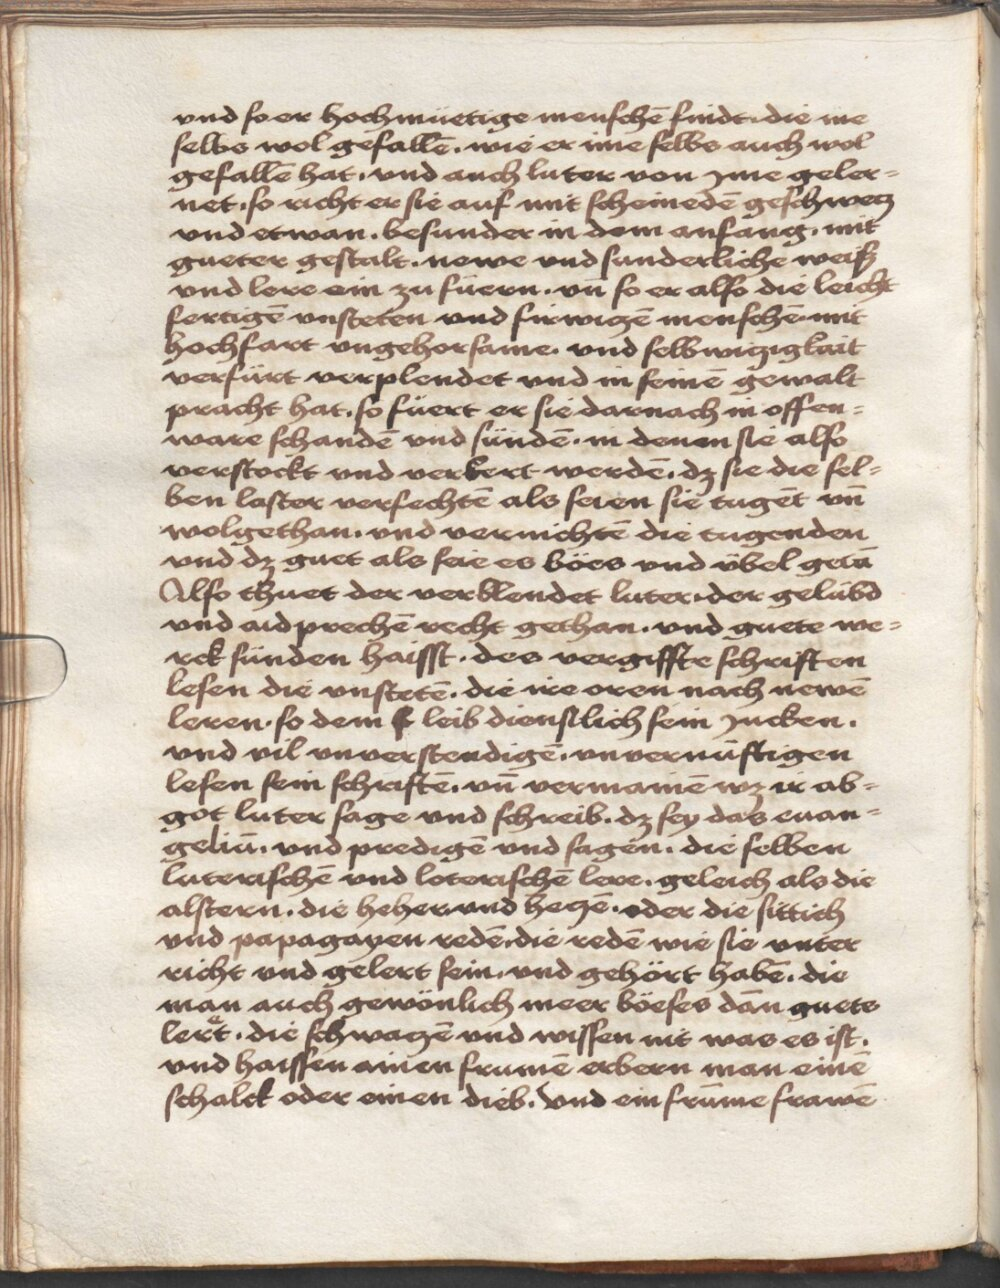 und so er hochmüetige menschē findt. die ine
selbs wol gefallē. wie er ime selbs auch wol
gefallē hat. und auch luter von Jme geler-
net. so richt er sie auf mit scheinedē geschwetz
und etwan. besunder in dem anfang. mit
gueter gestalt. newe und sunderliche weiß
und lere ein zu füern. uñ so er also die leicht
fertigē unstetē und firwizē menschē mit
hochfart ungehorsame. und selbwizigkait
verfürt verplendet und in seinē gewalt
pracht hat. so füert er sie darnach in offen-
ware schandē und sündē. in denen sie also
verstockt und verkert werdē. dz sie die sel-
ben laster verfechtē als seien sie tugēt uñ
wolgethan. und vernichtē die tugenden
und dz guet als seie es böes und übel getā
Also thuet der verblendet luter. der gelübd
und aid prechē recht gethan. und guete we-
rck sünden haisst. des vergiffte schriften
lesen die unstetē. die ire oren nach newē
leren. so dem leib dienstlich sein Jucken.
und vil unverstendigē. unvernünftigen
lesen sein schriftē. uñ vermainē wz ir ab-
got luter sage und schreib. dz sey das euan-
geliū. und predigē und sagen. die selben
luterischē und loterischē lere. geleich als die
alstern. die heher und hezē. oder die sittich
und papagayen redē. die redē wie sie unter
richt und gelert sein. und gehört habē. die
man auch gewönlich meer böeses dān guets
leret. die schwazē und wissen nit was es ist.
und haissen ainen frumē erbern man einē
schalck oder einen dieb. Und ein frūme frawē